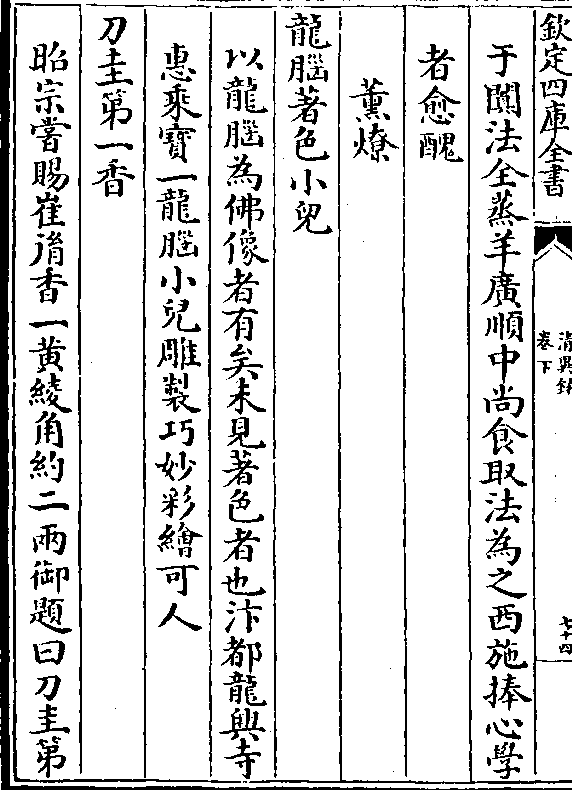 欽定四庫全書
清異錄
卷下
七十四
于闐法全蒸羊廣順中尚食取法為之西施捧心學
者愈醜
薰燎
龍腦著色小兒
以龍腦為佛像者有矣未見著色者也汴都龍興寺
惠乘寶一龍腦小兒雕製巧妙彩繪可人
刀圭第一香
昭宗嘗賜崔消香一黄綾角約二兩御題曰刀圭第